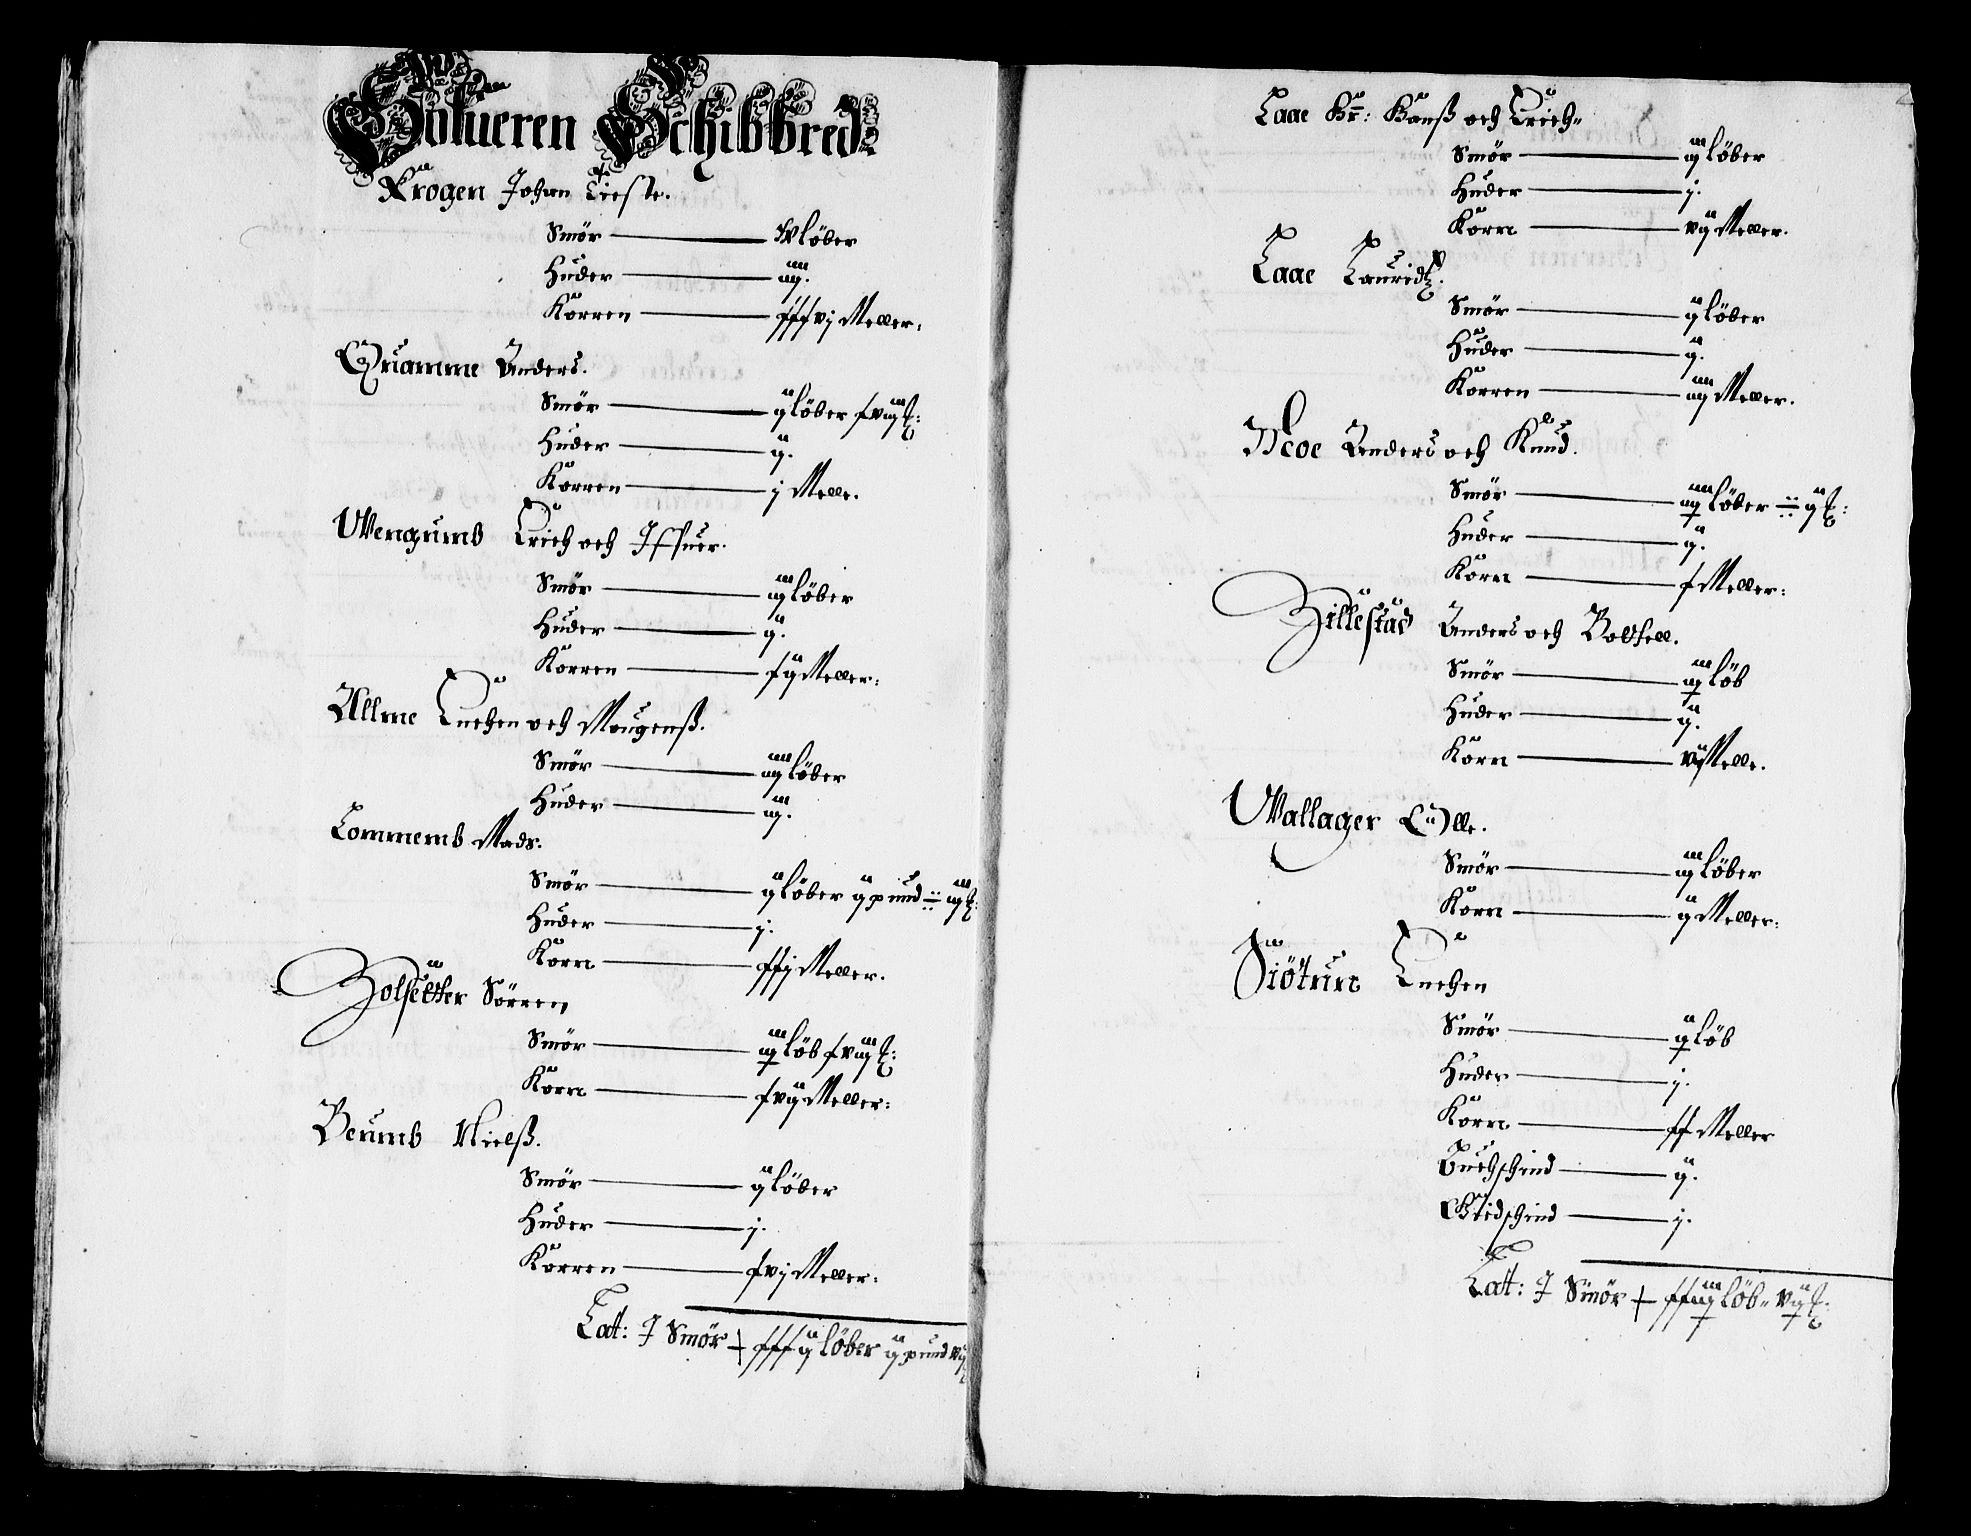 Sølueren Schibbred
Krogen Johan Tieste.
Smör — iv löber
Huder — iiij.
Korren — xxxvj Meller:
Quamme Anders.
Smör — ij löber xviij ℔:
Huder — ij.
Korren — j Melle.
Wengumb Erich och Iffuer.
Smör — iij löber
Huder — ij.
Korren — xij Meller:
Allme Enchen och Mougenß.
Smör — iiij löber
Huder — iij.
Lommemb Mads.
Smör — ij löber ij pund iij ℔:
Huder — j.
Korn — xxj Meller.
Holsetter Sörren
Smör — löb xviij ℔:
Korn — xvij Meller:
Beumb Nielß.
Smör — ij löber
Huder — j.
Korren — xvj Meller:
Lat: I Smör + xxxij löber ij pund
Laae Hr: Hanß och Erich
Smör — iij löber
Huder — j.
Korn — vij Meller.
Laae Lauridtz.
Smör — ij löber
Huder — ij.
Korren — iiij Meller.
Moe Anders och Knud.
Smör — löber ij ℔:
Huder — ij.
Korn — x Meller:
Hillestad Anders och Bottell.
Smör — löb
Huder — ij.
Korn — Melle.
Wallager Olle.
Smör — iij löber
Korn — ij Meller:
Fiötun Enchen
Smör — löb
Huder — j.
Korn — xx Meller
Buchschind — ij.
Giedschind — j.
Lat: I Smör + löb